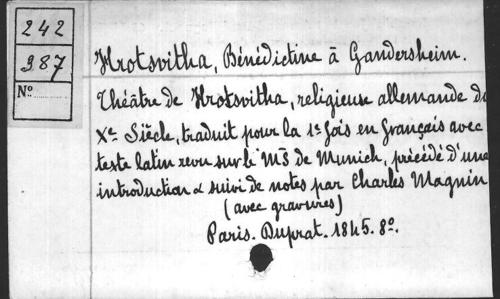 242
987
No
Hrotsvitha, Bénédictine à Gandersheim.
Théâtre de Hrotsvitha, religieuse allemande du
Xe Siècle, traduit pour la 1e fois en français avec
texte latin revu sur le Ms de Munich, précédé d'une
introduction & suivi de notes par Charles Magnin
(avec gravures)
Paris. Duprat. 1845. 8o.